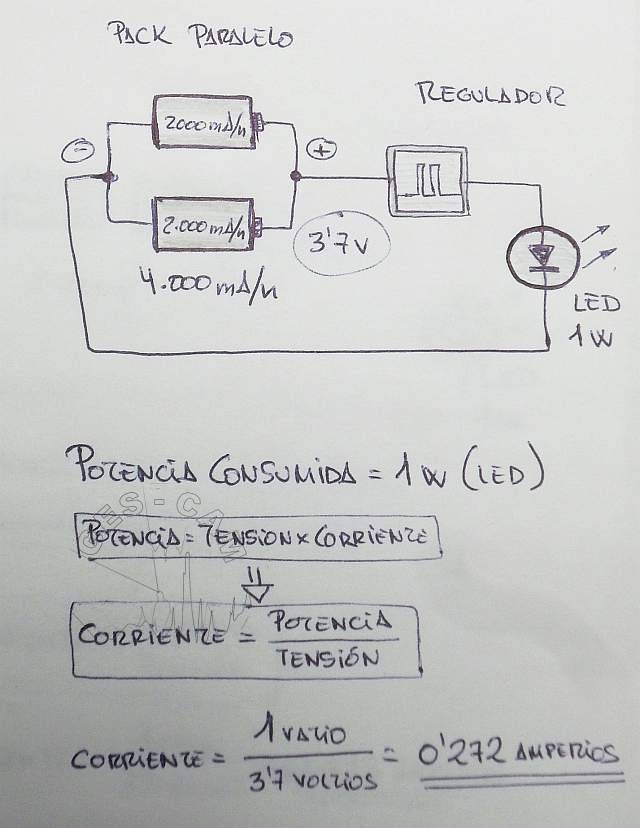 PACK PARALELO
REGULADOR
2000mA/h
- +
2.000mA/h
3'7V
4.000mA/h
LED
1W
POTENCIA CONSUMIDA = 1W (LED)
CES - CAS
POTENCIA = TENSION x CORRIENTE
CORRIENTE = POTENCIA
TENSIÓN
CORRIENTE = 1 VATIO = 0'272 AMPERIOS
3'7 VOLTIOS